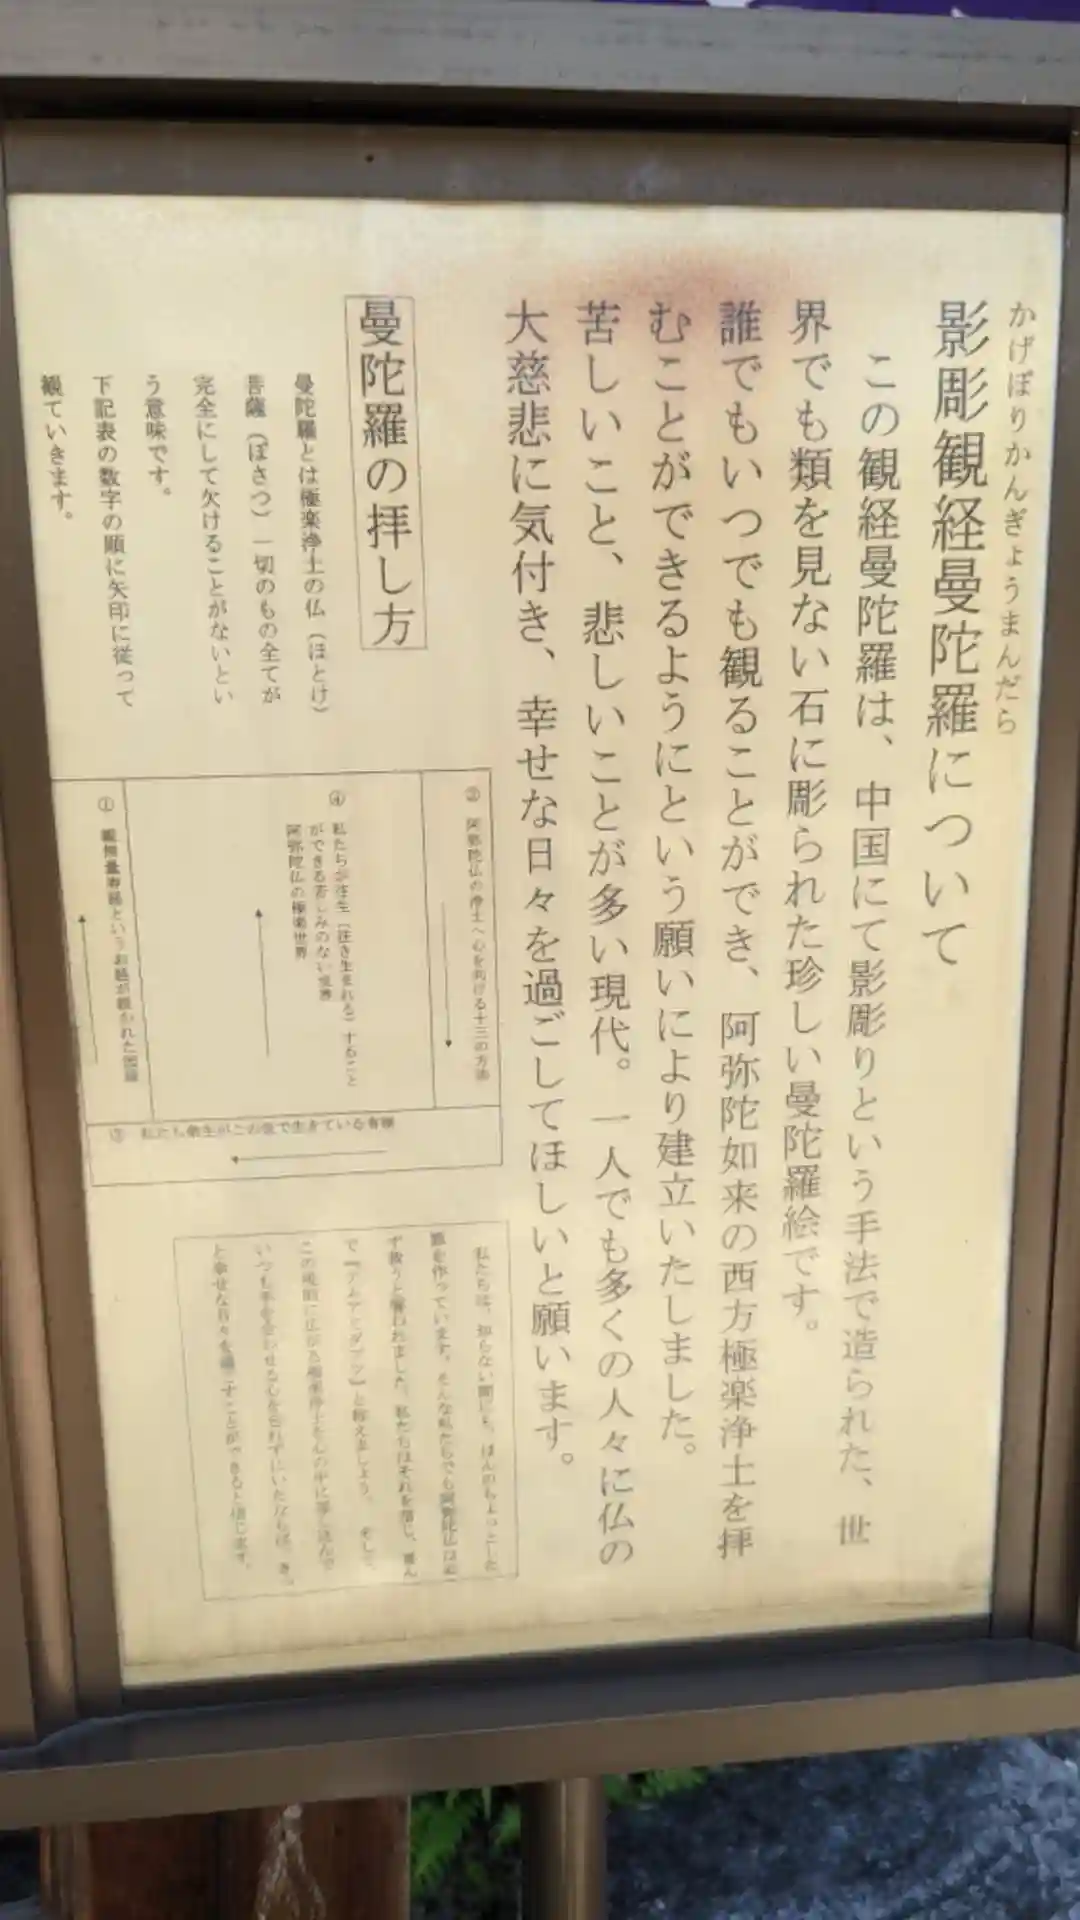 かげぼりかんぎょうまんだら
影彫観経曼陀羅について
この観経曼陀羅は、中国にて影彫りという手法で造られた、世
界でも類を見ない石に彫られた珍しい曼陀羅絵です。
誰でもいつでも観ることができ、阿弥陀如来の西方極楽浄土を拝
むことができるようにという願いにより建立いたしました。
苦しいこと、悲しいことが多い現代。一人でも多くの人々に仏の
大慈悲に気付き、幸せな日々を過ごしてほしいと願います。
曼陀羅の拝し方
曼陀羅とは極楽浄土の仏（ほとけ）
菩薩（ぼさつ）一切のもの全てが
完全にして欠けることがないとい
う意味です。
下記表の数字の順に矢印に従って
観ていきます。
① 観無量寿経というお経が説かれた
② 阿弥陀仏の浄土へ心を向ける十三の方法
③ 私たち衆生がこの世で生きている
④ 私たちが往生（往き生まれる）すること
ができる苦しみのない世界
阿弥陀仏の極楽世界
私たちは、知らない間にも、ほんのちょっとした
罪を作っています。そんな私たちでも阿弥陀仏は必
ず救うと誓われました。私たちはそれを信じ、
で『ナムアミダブツ』と称えましょう。そして、
この曼陀羅に広がる極楽浄土を心の中に
いつも手を合わせる心を忘れずにいたならば、き
と幸せな日々を過ごすことができると信じます。